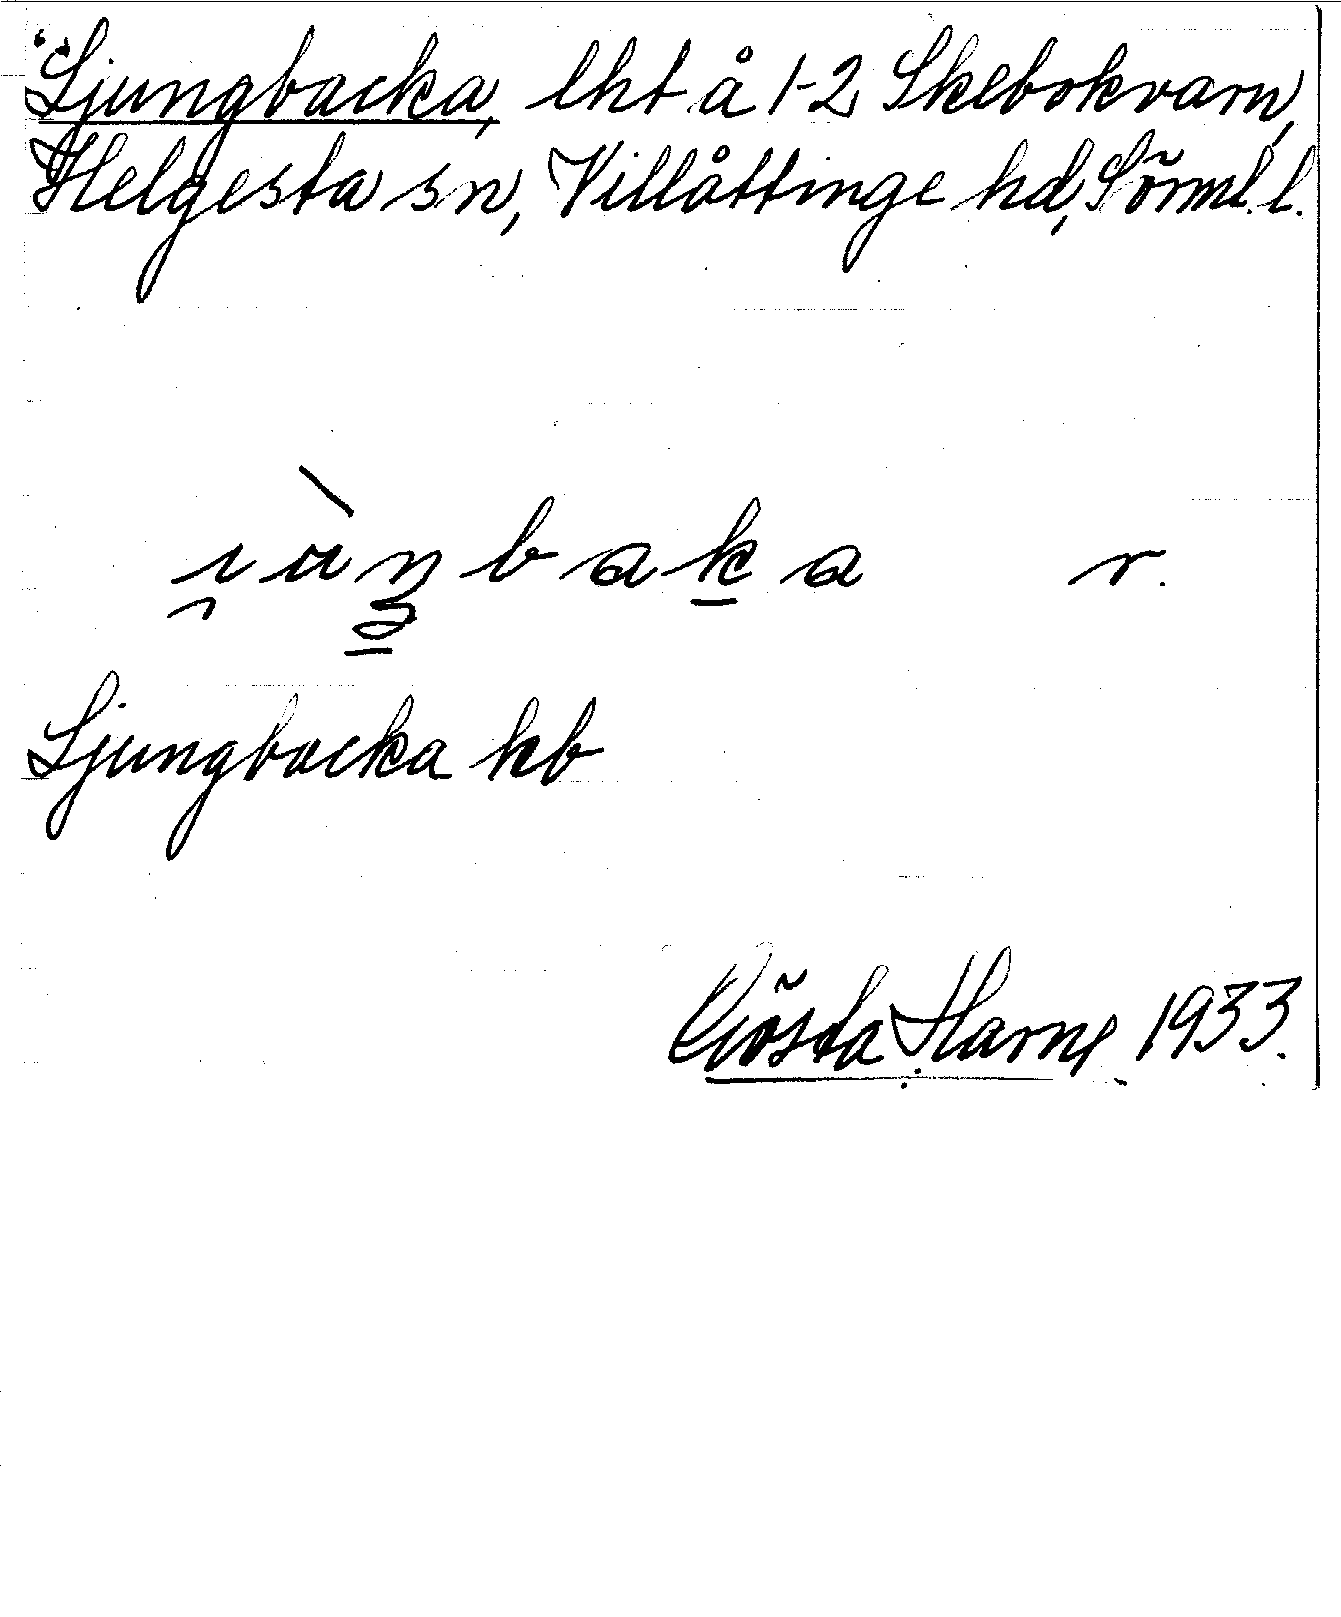 Ljungbacka, lht å 1-2 Skebokvarn,
Helgesta sn, Villåttinge hd, Sörml. l.
i̯ùŋbaka r.
Ljungbacka kb
Gösta Harne 1933.